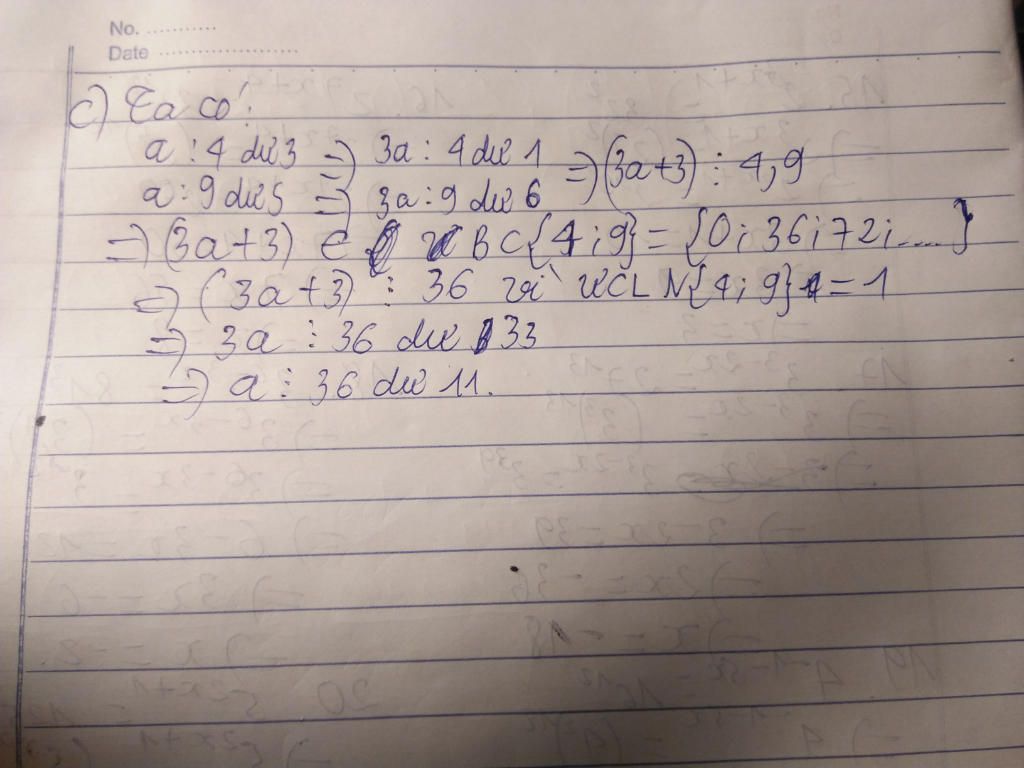 No. ...........
Date .......................
c) Ta có:
a : 4 dư 3 => 3a : 4 dư 1 => (3a+3) ⋮ 4,9
a : 9 dư 5 => 3a : 9 dư 6
=> (3a+3) ∈ BC{4;9} = {0; 36; 72; ....}
=> (3a+3) ⋮ 36 vì ƯCLN{4;9} = 1
=> 3a ⋮ 36 dư 33
=> a ⋮ 36 dư 11.